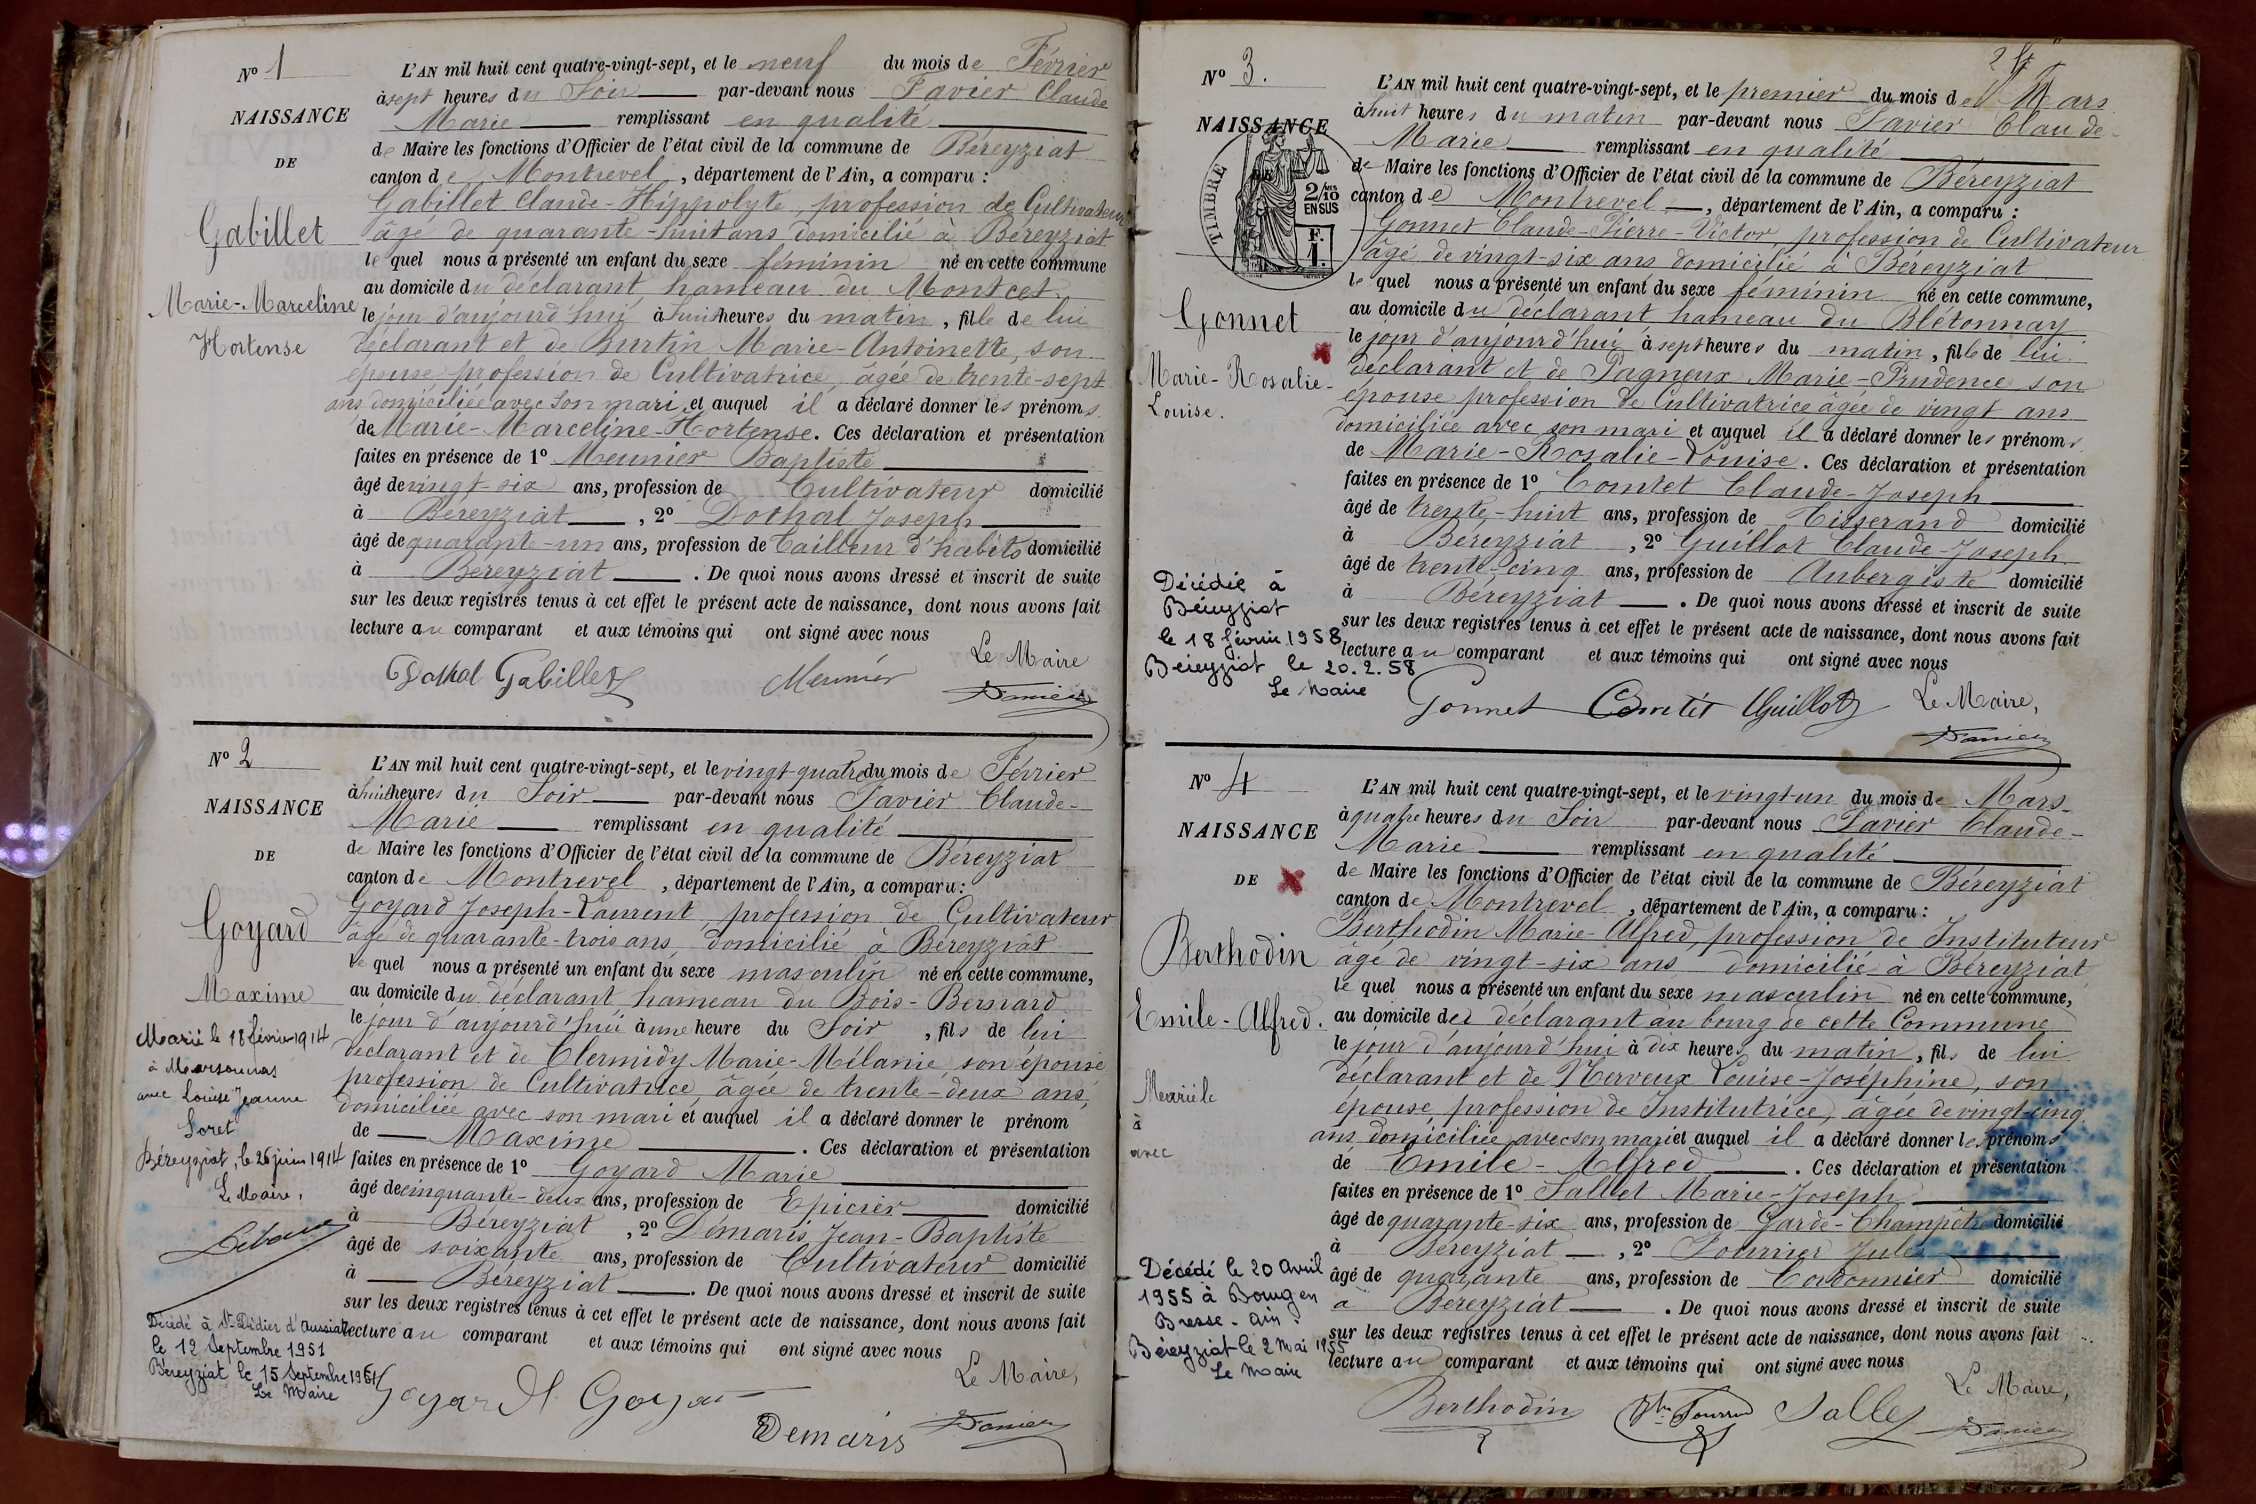 Nº 1
NAISSANCE
DE
Gabillet
Marie-Marceline
Hortense
L'AN mil huit cent quatre-vingt-sept, et le neuf du mois de Février
à sept heures du Soir par-devant nous Favier Claude
Marie remplissant en qualité
de Maire les fonctions d'Officier de l'état civil de la commune de Béreyziat
canton de Montrevel, département de l'Ain, a comparu :
Gabillet Claude-Hippolyte, profession de Cultivateur
âgé de quarante-huit ans domicilié à Béreyziat
le quel nous a présenté un enfant du sexe féminin né en cette commune
au domicile du déclarant hameau du Montcet
le jour d'aujourd'hui à huit heures du matin, fille de lui
déclarant et de Burtin Marie-Antoinette, son
épouse profession de Cultivatrice, âgée de trente-sept
ans domiciliée avec son mari et auquel il a déclaré donner les prénoms
de Marie-Marceline-Hortense. Ces déclaration et présentation
faites en présence de 1º Meunier Baptiste
âgé de vingt-six ans, profession de Cultivateur domicilié
à Béreyziat, 2º Dothal Joseph
âgé de quarante-un ans, profession de Tailleur d'habits domicilié
à Béreyziat. De quoi nous avons dressé et inscrit de suite
sur les deux registres tenus à cet effet le présent acte de naissance, dont nous avons fait
lecture au comparant et aux témoins qui ont signé avec nous
Le Maire
Dothal Gabillet Meunier
Nº 2
NAISSANCE
DE
Goyard
Maxime
Marié le 18 février 1914
à Marsonnas
avec Louise Jeanne
Loret
Béreyziat, le 26 juin 1914
Le Maire,
Décédé à St Didier d'Aussiat
le 12 Septembre 1951
Béreyziat le 15 Septembre 1951
Le Maire
L'AN mil huit cent quatre-vingt-sept, et le vingt-quatre du mois de Février
à huit heures du Soir par-devant nous Favier Claude-
Marie remplissant en qualité
de Maire les fonctions d'Officier de l'état civil de la commune de Béreyziat
canton de Montrevel, département de l'Ain, a comparu :
Goyard Joseph-Laurent profession de Cultivateur
âgé de quarante-trois ans domicilié à Béreyziat
le quel nous a présenté un enfant du sexe masculin né en cette commune,
au domicile du déclarant hameau du Bois-Bernard
le jour d'aujourd'hui à une heure du Soir, fils de lui
déclarant et de Clermidy Marie-Mélanie, son épouse
profession de Cultivatrice, âgée de trente-deux ans,
domiciliée avec son mari et auquel il a déclaré donner le prénom
de Maxime. Ces déclaration et présentation
faites en présence de 1º Goyard Marie
âgé de cinquante-deux ans, profession de Epicier domicilié
à Béreyziat, 2º Démaris Jean-Baptiste
âgé de soixante ans, profession de Cultivateur domicilié
à Béreyziat. De quoi nous avons dressé et inscrit de suite
sur les deux registres tenus à cet effet le présent acte de naissance, dont nous avons fait
lecture au comparant et aux témoins qui ont signé avec nous
Le Maire,
Goyard Goyard
Demaris
Nº 3.
NAISSANCE
TIMBRE
2/10
EN SUS
F.
1.
Gonnet
Marie-Rosalie-
Louise.
Décédée à
Béreyziat
le 18 février 1958
Béreyziat le 20.2.58
Le Maire
L'AN mil huit cent quatre-vingt-sept, et le premier du mois de Mars
à huit heures du matin par-devant nous Favier Claude-
Marie remplissant en qualité
de Maire les fonctions d'Officier de l'état civil de la commune de Béreyziat
canton de Montrevel, département de l'Ain, a comparu :
Gonnet Claude-Pierre-Victor, profession de Cultivateur
âgé de vingt-six ans domicilié à Béreyziat
le quel nous a présenté un enfant du sexe féminin né en cette commune,
au domicile du déclarant hameau du Blétonnay
le jour d'aujourd'hui à sept heures du matin, fille de lui
déclarant et de Pagneux Marie-Prudence son
épouse profession de Cultivatrice âgée de vingt ans
domiciliée avec son mari et auquel il a déclaré donner les prénoms
de Marie-Rosalie-Louise. Ces déclaration et présentation
faites en présence de 1º Comtet Claude-Joseph
âgé de trente-huit ans, profession de Tisserand domicilié
à Béreyziat, 2º Guillot Claude-Joseph
âgé de trente-cinq ans, profession de Aubergiste domicilié
à Béreyziat. De quoi nous avons dressé et inscrit de suite
sur les deux registres tenus à cet effet le présent acte de naissance, dont nous avons fait
lecture au comparant et aux témoins qui ont signé avec nous
Gonnet Comtet Guillot Le Maire,
Nº 4
NAISSANCE
DE
Berthodin
Emile-Alfred.
Marié le
à
avec
Décédé le 20 Avril
1955 à Bourg en
Bresse - Ain
Béreyziat le 2 Mai 1955
Le Maire
L'AN mil huit cent quatre-vingt-sept, et le vingt-un du mois de Mars
à quatre heures du Soir par-devant nous Favier Claude-
Marie remplissant en qualité
de Maire les fonctions d'Officier de l'état civil de la commune de Béreyziat
canton de Montrevel, département de l'Ain, a comparu :
Berthodin Marie-Alfred, profession de Instituteur
âgé de vingt-six ans domicilié à Béreyziat
le quel nous a présenté un enfant du sexe masculin né en cette commune,
au domicile du déclarant au bourg de cette Commune
le jour d'aujourd'hui à dix heures du matin, fils de lui
déclarant et de Nerveux Louise-Joséphine, son
épouse, profession de Institutrice, âgée de vingt-cinq
ans domiciliée avec son mari et auquel il a déclaré donner les prénoms
de Emile-Alfred. Ces déclaration et présentation
faites en présence de 1º Sallet Marie-Joseph
âgé de quarante-six ans, profession de Garde-Champêtre domicilié
à Béreyziat, 2º Fourrier Jules
âgé de quarante ans, profession de Cordonnier domicilié
à Béreyziat. De quoi nous avons dressé et inscrit de suite
sur les deux registres tenus à cet effet le présent acte de naissance, dont nous avons fait
lecture au comparant et aux témoins qui ont signé avec nous
Le Maire,
Berthodin